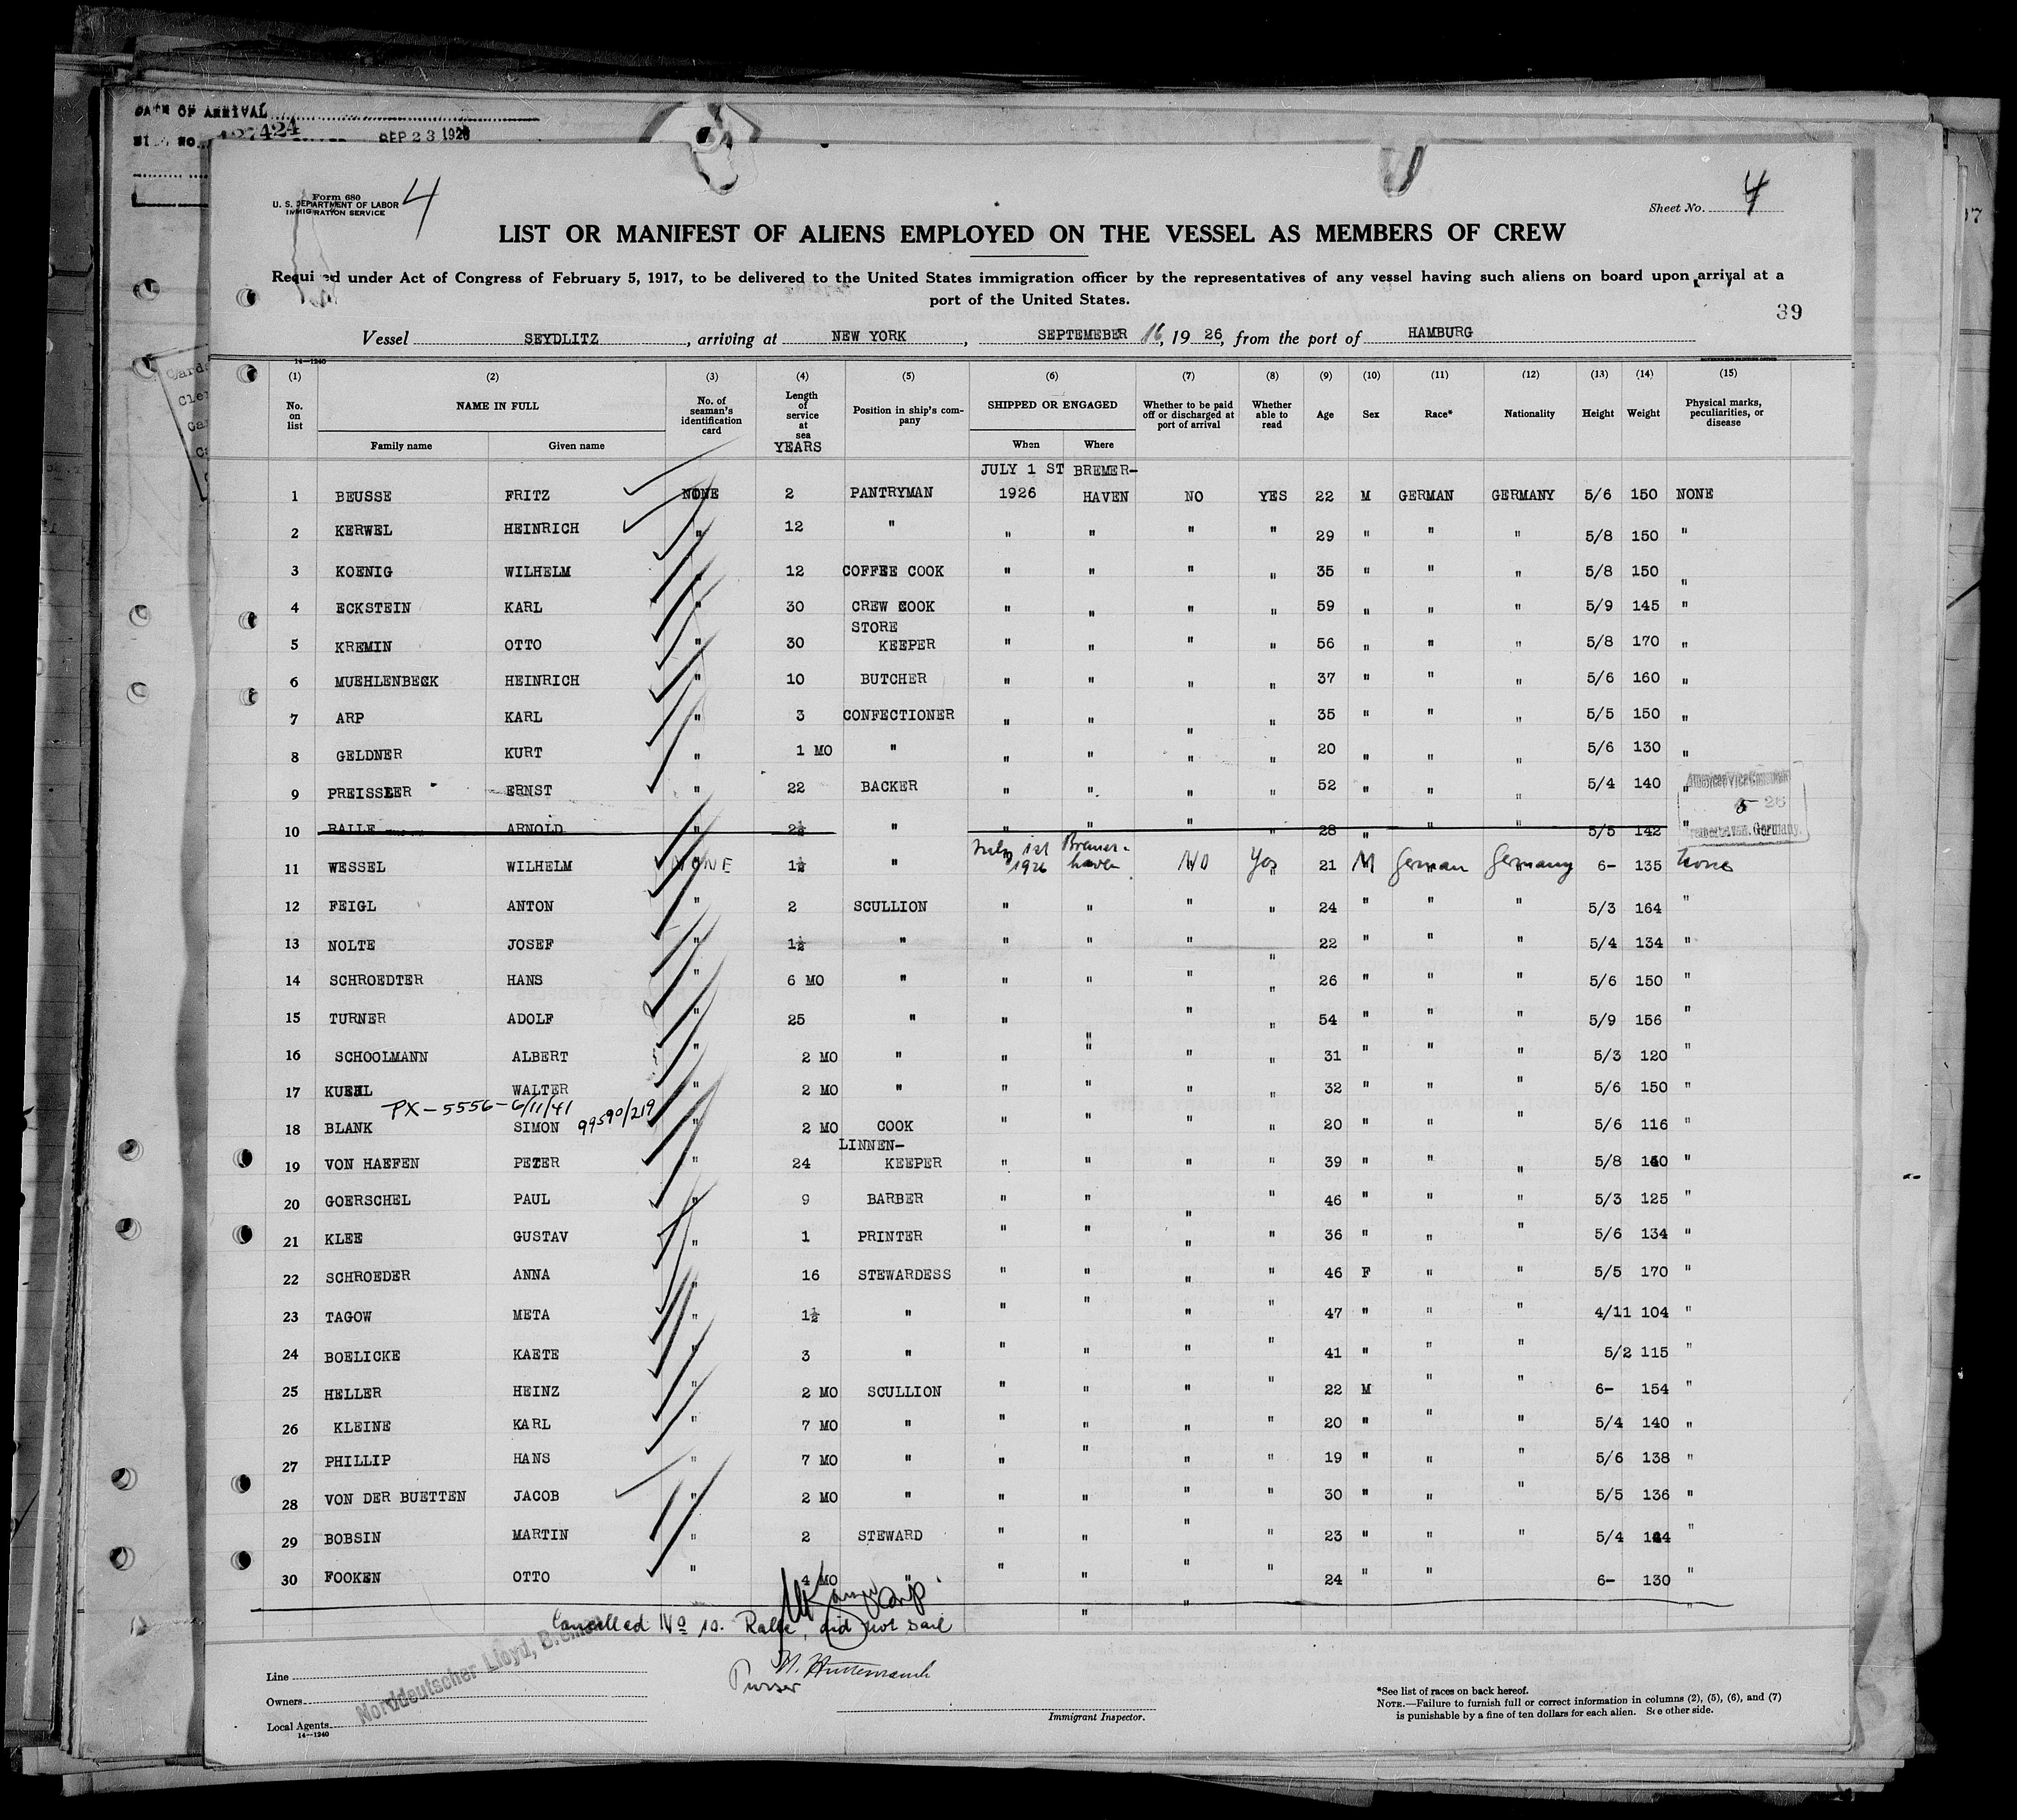 DATE OF ARRIVAL
127424 SEP 23 1926
Form 680
U. S. DEPARTMENT OF LABOR
IMMIGRATION SERVICE
4
Sheet No. 4
LIST OR MANIFEST OF ALIENS EMPLOYED ON THE VESSEL AS MEMBERS OF CREW
Required under Act of Congress of February 5, 1917, to be delivered to the United States immigration officer by the representatives of any vessel having such aliens on board upon arrival at a
port of the United States.
39
Vessel SEYDLITZ, arriving at NEW YORK, SEPTEMEBER 16, 19 26, from the port of HAMBURG
14—1240
(1) (2) (3) (4) (5) (6) (7) (8) (9) (10) (11) (12) (13) (14) (15)
No. on list NAME IN FULL Family name Given name No. of seaman's identification card Length of service at sea YEARS Position in ship's company SHIPPED OR ENGAGED When Where Whether to be paid off or discharged at port of arrival Whether able to read Age Sex Race* Nationality Height Weight Physical marks, peculiarities, or disease
JULY 1 ST BREMER-
1 BEUSSE FRITZ NONE 2 PANTRYMAN 1926 HAVEN NO YES 22 M GERMAN GERMANY 5/6 150 NONE
2 KERWEL HEINRICH " 12 " " " " " 29 " " " 5/8 150 "
3 KOENIG WILHELM " 12 COFFEE COOK " " " " 35 " " " 5/8 150 "
4 ECKSTEIN KARL " 30 CREW COOK " " " " 59 " " " 5/9 145 "
STORE
5 KREMIN OTTO " 30 KEEPER " " " " 56 " " " 5/8 170 "
6 MUEHLENBECK HEINRICH " 10 BUTCHER " " " " 37 " " " 5/6 160 "
7 ARP KARL " 3 CONFECTIONER " " " " 35 " " " 5/5 150 "
8 GELDNER KURT " 1 MO " " " " " 20 " " " 5/6 130 "
9 PREISSLER ERNST " 22 BACKER " " " " 52 " " " 5/4 140 "
10 RALLE ARNOLD " 2½ " " " " " 28 " " " 5/5 142 "
July 1st Bremer-
11 WESSEL WILHELM NONE 1½ " 1926 haven NO Yes 21 M German Germany 6- 135 None
12 FEIGL ANTON " 2 SCULLION " " " " 24 " " " 5/3 164 "
13 NOLTE JOSEF " 1½ " " " " " 22 " " " 5/4 134 "
14 SCHROEDTER HANS " 6 MO " " " " " 26 " " " 5/6 150 "
15 TURNER ADOLF " 25 " " " " " 54 " " " 5/9 156 "
16 SCHOOLMANN ALBERT " 2 MO " " " " " 31 " " " 5/3 120 "
17 KUEHL WALTER " 2 MO " " " " " 32 " " " 5/6 150 "
PX-5556-6/11/41 99590/219
18 BLANK SIMON " 2 MO COOK " " " " 20 " " " 5/6 116 "
LINNEN-
19 VON HAEFEN PETER " 24 KEEPER " " " " 39 " " " 5/8 140 "
20 GOERSCHEL PAUL " 9 BARBER " " " " 46 " " " 5/3 125 "
21 KLEE GUSTAV " 1 PRINTER " " " " 36 " " " 5/6 134 "
22 SCHROEDER ANNA " 16 STEWARDESS " " " " 46 F " " 5/5 170 "
23 TAGOW META " 1½ " " " " " 47 " " " 4/11 104 "
24 BOELICKE KAETE " 3 " " " " " 41 " " " 5/2 115 "
25 HELLER HEINZ " 2 MO SCULLION " " " " 22 M " " 6- 154 "
26 KLEINE KARL " 7 MO " " " " " 20 " " " 5/4 140 "
27 PHILLIP HANS " 7 MO " " " " " 19 " " " 5/6 138 "
28 VON DER BUETTEN JACOB " 2 MO " " " " " 30 " " " 5/5 136 "
29 BOBSIN MARTIN " 2 STEWARD " " " " 23 " " " 5/4 144 "
30 FOOKEN OTTO " 4 MO " " " " " 24 " " 6- 130 "
Cancelled No 10. Ralle, did not sail
Purser
Line
Owners
Local Agents
Norddeutscher Lloyd, Bremen
14—1240
Immigrant Inspector.
*See list of races on back hereof.
NOTE.—Failure to furnish full or correct information in columns (2), (5), (6), and (7)
is punishable by a fine of ten dollars for each alien. See other side.